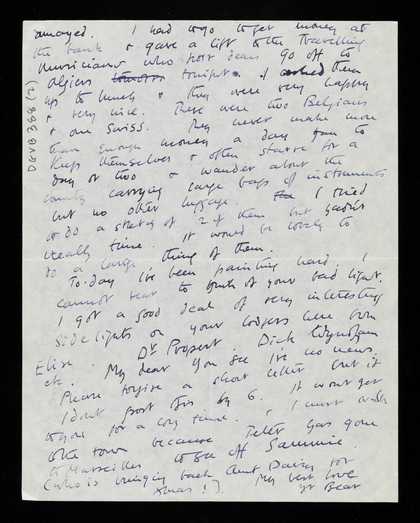 annoyed. I had to go to get money at
the bank & gave a lift to the travelling
musicians who poor dears go off to
Algiers tomorrow tonight. I asked them
up to lunch & they were very happy
& very nice. There were two Belgians
& one Swiss. They never make more
than enough money a day to
keep themselves & often starve for a
day or two & wander about the
country carrying large bags of instruments
but no other luggage. I tried
to do a sketch of 2 of them but hadn't
really time. It would be lovely to
do a large thing of them.
To-day I've been painting hard. I
cannot bear to think of your bad light.
I got a good deal of very interesting
side lights on your lodgers here from
Elise. Dr Propert. Dick Wyndham
etc. My dear you see I've no news.
Please forgive a short letter but if
I dont post this by 6. it wont get
to you for a long time. I must walk
to the town because Peter has gone
to Marseilles to see off Sammie.
(who is bringing back Aunt Daisy for
Xmas!) My best love
yr Bear
DGVB 388 (2)